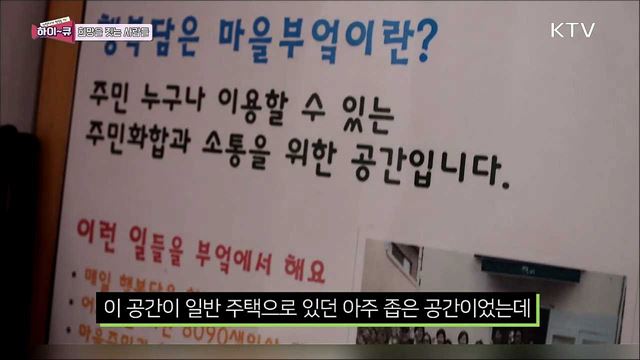 하이~큐 희망을 짓는 사람들
KTV
행복담은 마을부엌이란?
주민 누구나 이용할 수 있는
주민화합과 소통을 위한 공간입니다.
이런 일들을 부엌에서 해요
• 매일 행복담은
8090생일상
마을주민
이 공간이 일반 주택으로 있던 아주 좁은 공간이었는데